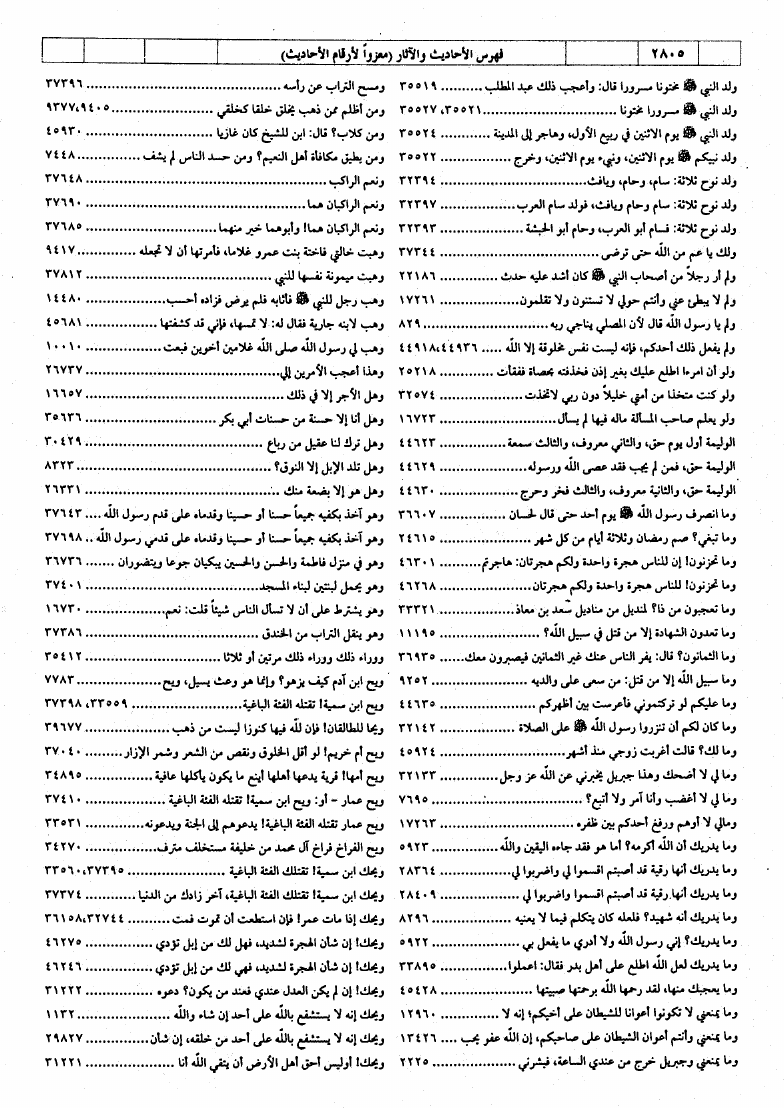 ٢٨٠٥
فهرس الأحاديث والآثار (معزواً لأرقام الأحاديث)
ولد النبي ﷺ مختونا مسرورا قال: وأعجب ذلك عبد المطلب .......... ٣٥٥١٩
ولد النبي ﷺ مسرورا مختونا .......... ٣٥٥٢١، ٣٥٥٢٧
ولد النبي ﷺ يوم الاثنين في ربيع الأول، وهاجر إلى المدينة .......... ٣٥٥٢٤
ولد نبيكم ﷺ يوم الاثنين، ونبىء يوم الاثنين، وخرج .......... ٣٥٥٢٢
ولد نوح ثلاثة: سام، وحام، ويافث .......... ٣٢٣٩٤
ولد نوح ثلاثة: سام وحام ويافث، فولد سام العرب .......... ٣٢٣٩٧
ولد نوح ثلاثة: فسام أبو العرب، وحام أبو الحبشة .......... ٣٢٣٩٣
ولك يا عم من الله حتى ترضى .......... ٣٧٣٤٤
ولم أر رجلاً من أصحاب النبي ﷺ كان أشد عليه حدث .......... ٢٢١٨٦
ولم لا يبطئ عني وأنتم حولي لا تستنون ولا تقلمون .......... ١٧٢٦١
ولم يا رسول الله قال لأن المصلي يناجي ربه .......... ٨٢٩
ولم يفعل ذلك أحدكم، فإنه ليست نفس مخلوقة إلا الله ..... ٤٤٩٣٦، ٤٤٩١٨
ولو أن امرءا اطلع عليك بغير إذن فخذفته بحصاة ففقأت .......... ٢٥٢١٨
ولو كنت متخذا من أمتي خليلاً دون ربي لاتخذت .......... ٣٢٥٧٤
ولو يعلم صاحب المسألة ماله فيها لم يسأل .......... ١٦٧٢٣
الوليمة أول يوم حق، والثاني معروف، والثالث سمعة .......... ٤٤٦٢٣
الوليمة حق، فمن لم يجب فقد عصى الله ورسوله .......... ٤٤٦٢٩
الوليمة حق، والثانية معروف، والثالث فخر وحرج .......... ٤٤٦٣٠
وما انصرف رسول الله ﷺ يوم أحد حتى قال لحسان .......... ٣٦٦٠٧
وما تبغي؟ صم رمضان وثلاثة أيام من كل شهر .......... ٢٤٦١٥
وما تحزنون! إن للناس هجرة واحدة ولكم هجرتان: هاجرتم .......... ٤٦٣٠١
وما تحزنون! للناس هجرة واحدة ولكم هجرتان .......... ٤٦٢٦٨
وما تعجبون من ذا؟ لمنديل من مناديل سعد بن معاذ .......... ٣٣٣٢١
وما تعدون الشهادة إلا من قتل في سبيل الله؟ .......... ١١١٩٥
وما الثمانون؟ قال: يفر الناس عنك غير الثمانين فيصبرون معك ...... ٣٦٩٣٥
وما سبيل الله إلا من قتل: من سعى على والديه .......... ٩٢٥٢
وما عليكم لو تركتموني فأعرست بين أظهركم .......... ٤٤٦٣٥
وما كان لكم أن تنزروا رسول الله ﷺ على الصلاة .......... ٣٢١٤٢
وما لك؟ قالت أغربت زوجي منذ أشهر .......... ٤٥٩٢٤
وما لي لا أضحك وهذا جبريل يخبرني عن الله عز وجل .......... ٣٢١٣٣
وما لي لا أغضب وأنا آمر ولا أتبع؟ .......... ٧٦٩٥
ومالي لا أوهم ورفغ أحدكم بين ظفره .......... ١٧٢٦٣
وما يدريك أن الله أكرمه؟ أما هو فقد جاءه اليقين والله .......... ٥٩٢٣
وما يدريك أنها رقية قد أصبتم اقسموا لي واضربوا لي .......... ٢٨٣٦٤
وما يدريك أنها رقية قد أصبتم اقسموا واضربوا لي .......... ٢٨٤٠٩
وما يدريك أنه شهيد؟ فلعله كان يتكلم فيما لا يعنيه .......... ٨٢٩٦
وما يدريك؟ إني رسول الله ولا أدري ما يفعل بي .......... ٥٩٢٢
وما يدريك لعل الله اطلع على أهل بدر فقال: اعملوا .......... ٣٣٨٩٥
وما يعجبك منها، لقد رحمها الله برحمتها صبيتها .......... ٤٥٤٢٨
وما يمنعني لا تكونوا أعوانا للشيطان على أخيكم؛ إنه لا .......... ١٢٩٦٠
وما يمنعني وأنتم أعوان الشيطان على صاحبكم، إن الله عفو يحب .... ١٣٤٢٦
وما يمنعني وجبريل خرج من عندي الساعة، فبشرني .......... ٢٢٢٥
ومسح التراب عن رأسه .......... ٣٧٣٩٦
ومن أظلم ممن ذهب يخلق خلقا كخلقي .......... ٩٤٠٥، ٩٣٧٧
ومن كلاب؟ قال: ابن للشيخ كان غازيا .......... ٤٥٩٣٠
ومن يطيق مكافأة أهل النعيم؟ ومن حسد الناس لم يشف .......... ٧٤٤٨
ونعم الراكب .......... ٣٧٦٤٨
ونعم الراكبان هما .......... ٣٧٦٩٠
ونعم الراكبان هما! وأبوهما خير منهما .......... ٣٧٦٨٥
وهبت خالتي فاختة بنت عمرو غلاما، فأمرتها أن لا تجعله .......... ٩٤١٧
وهبت ميمونة نفسها للنبي .......... ٣٧٨١٢
وهب رجل للنبي ﷺ فأثابه فلم يرض فزاده أحسب .......... ١٤٤٨٠
وهب لابنه جارية فقال له: لا تمسها، فإني قد كشفتها .......... ٤٥٦٨١
وهب لي رسول الله صلى الله غلامين أخوين فبعت .......... ١٠٠١٠
وهذا أعجب الأمرين إلي .......... ٢٦٧٣٧
وهل الأجر إلا في ذلك .......... ١٦٦٥٧
وهل أنا إلا حسنة من حسنات أبي بكر .......... ٣٥٦٣٦
وهل ترك لنا عقيل من رباع .......... ٣٠٤٢٩
وهل تلد الإبل إلا النوق؟ .......... ٨٣٢٣
وهل هو إلا بضعة منك .......... ٢٦٣٣١
وهو آخذ بكفيه جميعاً حسنا أو حسينا وقدماه على قدم رسول الله .... ٣٧٦٤٣
وهو آخذ بكفيه جميعاً حسنا أو حسينا وقدماه على قدمي رسول الله .. ٣٧٦٩٨
وهو في منزل فاطمة والحسن والحسين يبكيان جوعا ويتضوران ....... ٣٦٧٣٦
وهو يحمل لبنتين لبناء المسجد .......... ٣٧٤٠١
وهو يشترط على أن لا تسأل الناس شيئاً قلت: نعم .......... ١٦٧٣٠
وهو ينقل التراب من الخندق .......... ٣٧٣٨٦
ووراء ذلك ووراء ذلك مرتين أو ثلاثا .......... ٣٥٤١٢
ويح ابن آدم كيف يزهو؟ وإنما هو وعث يسيل، ويح .......... ٧٧٨٣
ويح ابن سمية! تقتله الفئة الباغية .......... ٣٣٥٥٩، ٣٧٣٩٨
ويحا للطالقان! فإن لله فيها كنوزا ليست من ذهب .......... ٣٩٦٧٧
ويح أم خريم! لو أقل الخلوق ونقص من الشعر وشمر الإزار .......... ٣٧٠٤٠
ويح أمها! قرية يدعها أهلها أينع ما يكون يأكلها عافية .......... ٣٤٨٩٥
ويح عمار - أو: ويح ابن سمية! تقتله الفئة الباغية .......... ٣٧٤١٠
ويح عمار تقتله الفئة الباغية! يدعوهم إلى الجنة ويدعونه .......... ٣٣٥٣١
ويح الفراخ فراخ آل محمد من خليفة مستخلف مترف .......... ٣٤٢٧٠
ويحك ابن سمية! تقتلك الفئة الباغية .......... ٣٧٣٩٥، ٣٣٥٦٠
ويحك ابن سمية! تقتلك الفئة الباغية، آخر زادك من الدنيا .......... ٣٧٣٧٤
ويحك إذا مات عمر! فإن استطعت أن تموت فمت .......... ٣٢٧٤٤، ٣٦١٥٨
ويحك! إن شأن الهجرة لشديد، فهل لك من إبل تؤدي .......... ٤٦٢٧٥
ويحك! إن شأن الهجرة لشديد، فهي لك من إبل تؤدي .......... ٤٦٢٤٦
ويحك! إن لم يكن العدل عندي فعند من يكون؟ دعوه .......... ٣١٢٢٢
ويحك إنه لا يستشفع بالله على أحد إن شاء والله .......... ١١٣٢
ويحك إنه لا يستشفع بالله على أحد من خلقه، إن شأن .......... ٢٩٨٢٧
ويحك! أوليس أحق أهل الأرض أن يتقي الله أنا .......... ٣١٢٢١